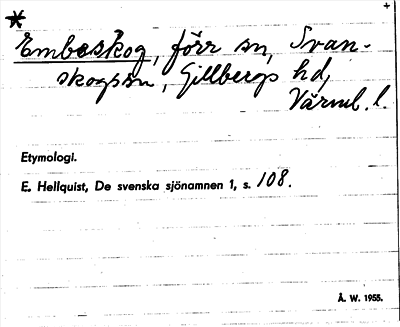 *
Emboskog, förr sn, Svan-
skogs sn, Gillbergs hd,
Värml. l.
Etymologi.
E. Hellquist, De svenska sjönamnen 1, s. 108.
Å. W. 1955.